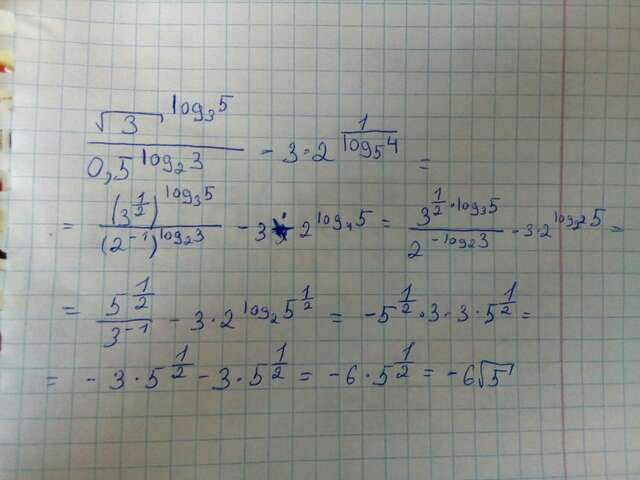 √3^log₃5 / 0,5^log₂3 - 3·2^(1/log₅4) =
= (3^(1/2))^log₃5 / (2^-1)^log₂3 - 3·2^log₄5 = 3^(1/2·log₃5) / 2^(-log₂3) - 3·2^log₂²5 =
= 5^(1/2) / 3^-1 - 3·2^log₂5^(1/2) = -5^(1/2)·3-3·5^(1/2) =
= -3·5^(1/2) - 3·5^(1/2) = -6·5^(1/2) = -6√5